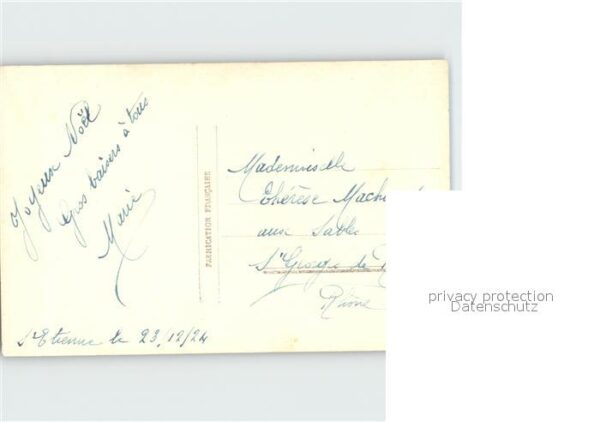 Joyeux Noël
Gros baisers à tous
Marie
St Etienne le 23/12/24
FABRICATION FRANÇAISE
Mademoiselle
Thérèse
aux Sables
St Georges de
Rhône
privacy protection
Datenschutz